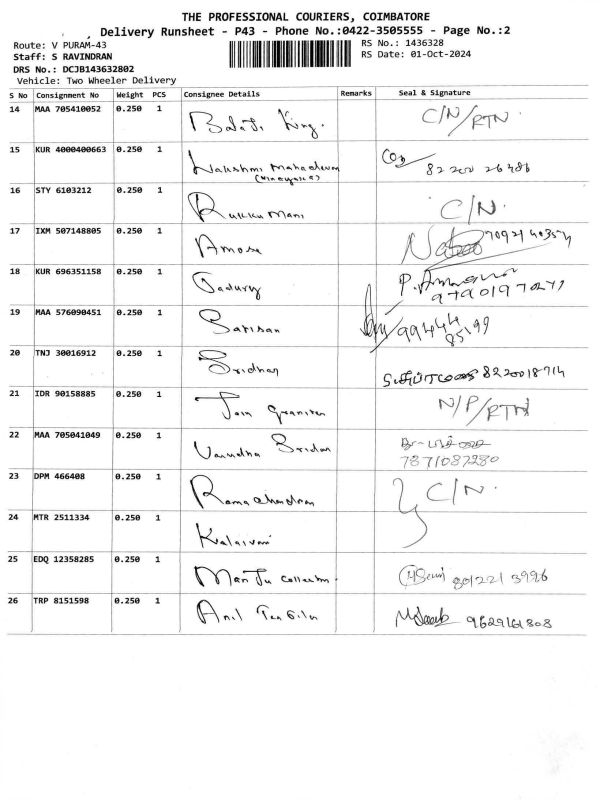 THE PROFESSIONAL COURIERS, COIMBATORE
Delivery Runsheet - P43 - Phone No.:0422-3505555 - Page No.:2
Route: V PURAM-43
RS No.: 1436328
Staff: S RAVINDRAN
RS Date: 01-Oct-2024
DRS No.: DCJB143632802
Vehicle: Two Wheeler Delivery
S No Consignment No Weight PCS Consignee Details Remarks Seal & Signature
14 MAA 705410052 0.250 1 Balaji King. C/N/RTN.
15 KUR 4000400663 0.250 1 Lakshmi Mahadevan
82200 26486
16 STY 6103212 0.250 1 Rukku Mani C/N.
17 IXM 507148805 0.250 1 Amose
18 KUR 696351158 0.250 1 P.
19 MAA 576090451 0.250 1 99444
85199
20 TNJ 30016912 0.250 1 Sridhar 8220018714
21 IDR 90158885 0.250 1 Jain Graniten N/P/RTN
22 MAA 705041049 0.250 1 Varudha Sridar
7871087280
23 DPM 466408 0.250 1 Ramachandran C/N.
24 MTR 2511334 0.250 1 Kalaivani
25 EDQ 12358285 0.250 1 Manju Collection. 80122 13996
26 TRP 8151598 0.250 1 Anil 9629161808